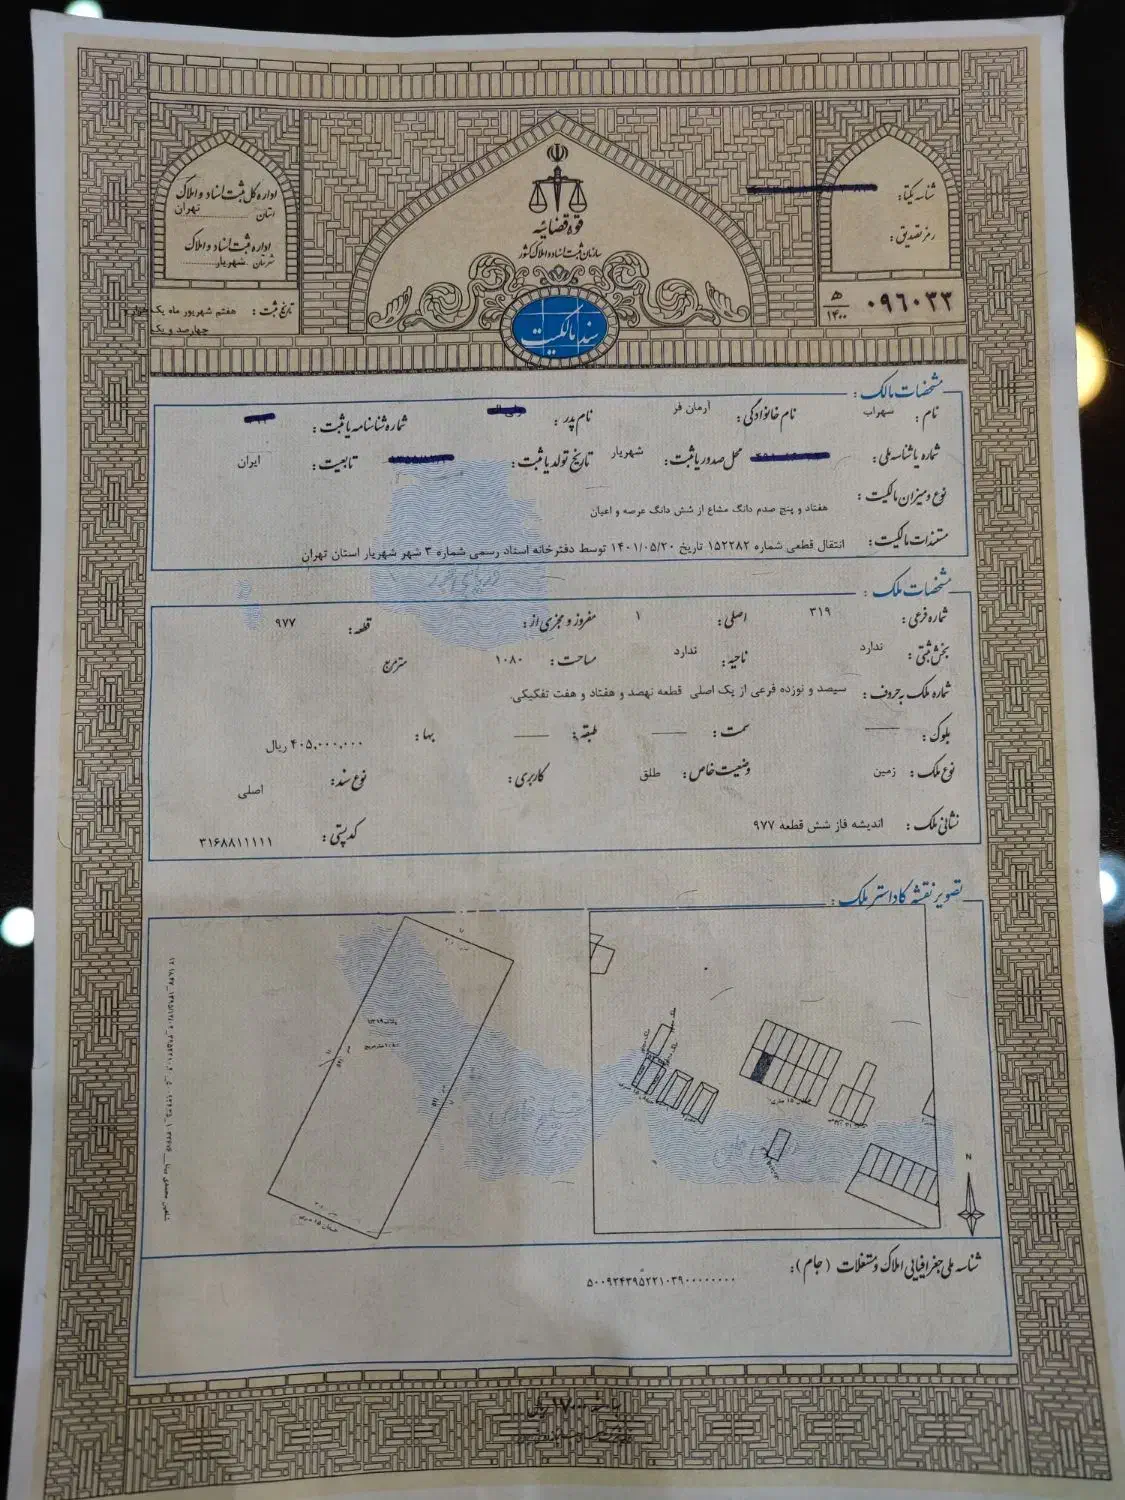 اداره کل ثبت اسناد و املاک
استان تهران
اداره ثبت اسناد و املاک
شهرستان شهریار
تاریخ ثبت : هفتم شهریور ماه یک هزار و
چهارصد و یک
قوه قضائیه
سازمان ثبت اسناد و املاک کشور
سند مالکیت
شناسه یکتا:
رمز تصدیق:
۰۹۶۰۳۳ ه‍ ۱۴۰۰
مشخصات مالک :
نام : سهراب نام خانوادگی : آرمان فر نام پدر : شماره شناسنامه یا ثبت :
شماره یا شناسه ملی : محل صدور یا ثبت : شهریار تاریخ تولد یا ثبت : تابعیت : ایران
نوع و میزان مالکیت : هفتاد و پنج صدم دانگ مشاع از شش دانگ عرصه و اعیان
مستندات مالکیت : انتقال قطعی شماره ۱۵۲۲۸۲ تاریخ ۱۴۰۱/۰۵/۲۰ توسط دفترخانه اسناد رسمی شماره ۳ شهر شهریار استان تهران
مشخصات ملک :
شماره فرعی : ۳۱۹ اصلی : ۱ مفروز و مجزی از : قطعه : ۹۷۷
بخش ثبتی : ندارد ناحیه : ندارد مساحت : ۱۰۸۰ مترمربع
شماره ملک به حروف : سیصد و نوزده فرعی از یک اصلی قطعه نهصد و هفتاد و هفت تفکیکی.
بلوک : سمت : طبقه : بها : ۴۰۵,۰۰۰,۰۰۰ ریال
نوع ملک : زمین وضعیت خاص : طلق کاربری : نوع سند : اصلی
نشانی ملک : اندیشه فاز شش قطعه ۹۷۷ کد پستی : ۳۱۶۸۸۱۱۱۱۱
تصویر نقشه کاداستر ملک :
N
شناسه ملی جغرافیایی املاک و مستغلات (جام) :
۵۰۰۹۲۴۳۹۵۲۲۱۰۳۹۰۰۰۰۰۰۰۰